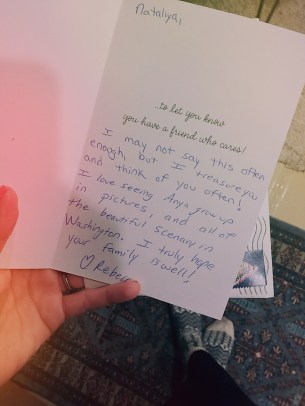 Nataliya,
...to let you know
you have a friend who cares!
I may not say this often
enough, but I treasure you
and think of you often!
I love seeing Anya grow up
in pictures, and all of
the beautiful scenary in
Washington. I truly hope
your family is well!
♡Rebe